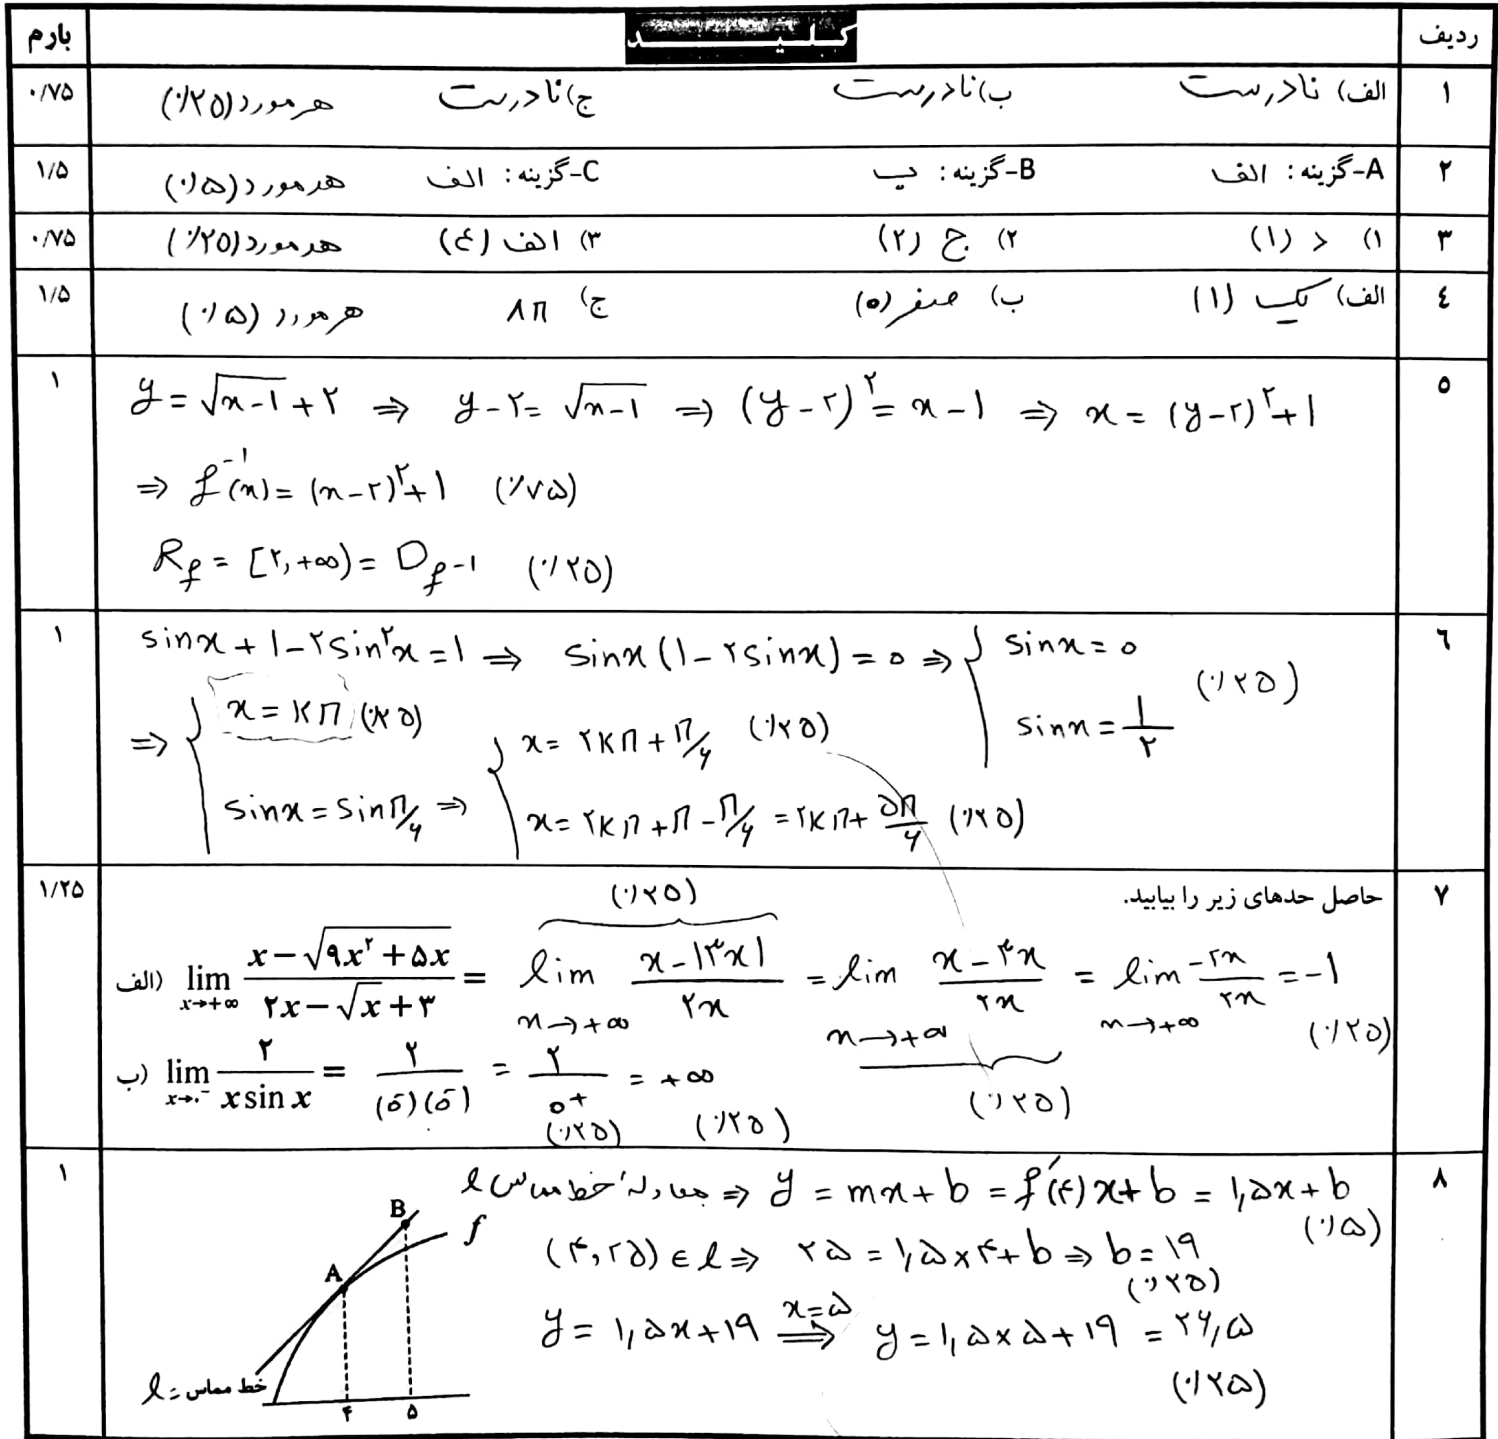 ردیف کلیـــــد بارم
۱ الف) نادرست ب) نادرست ج) نادرست هر مورد (۰/۲۵) ۰/۷۵
۲ A-گزینه: الف B-گزینه: ب C-گزینه: الف هر مورد (۰/۵) ۱/۵
۳ ۱) د (۱) ۲) ج (۲) ۳) الف (٤) هر مورد (۰/۲۵) ۰/۷۵
٤ الف) یک (۱) ب) صفر (۰) ج) ۸π هر مورد (۰/۵) ۱/۵
۵ y = √(x-۱) + ۲ ⇒ y-۲ = √(x-۱) ⇒ (y-۲)^۲ = x-۱ ⇒ x = (y-۲)^۲+۱ ۱
⇒ f^-۱(x) = (x-۲)^۲+۱ (۰/۷۵)
R_f = [۲,+∞) = D_f-۱ (۰/۲۵)
۶ sinx + ۱ - ۲sin^۲x = ۱ ⇒ sinx(۱-۲sinx) = ۰ ⇒ { sinx = ۰ ۱
sinx = ۱/۲ (۰/۲۵)
⇒ { x = Kπ (۰/۲۵)
sinx = sin π/۶ ⇒ { x = ۲Kπ + π/۶ (۰/۲۵)
x = ۲Kπ + π - π/۶ = ۲Kπ + ۵π/۶ (۰/۲۵)
۷ حاصل حدهای زیر را بیابید. ۱/۲۵
(۰/۲۵)
الف) lim x→+∞ (x-√(۹x^۲+۵x))/(۲x-√x+۳) = lim x→+∞ (x-|۳x|)/۲x = lim x→+∞ (x-۳x)/۲x = lim x→+∞ -۲x/۲x = -۱
(۰/۲۵) (۰/۲۵)
ب) lim x→۰^- ۲/(x sin x) = ۲/((۰^-)(۰^-)) = ۲/۰^+ = +∞
(۰/۲۵) (۰/۲۵)
۸ معادله خط مماس l ⇒ y = mx+b = f′(۴)x+b = ۱,۵x+b ۱
(۰/۵)
(۴,۲۵) ∈ l ⇒ ۲۵ = ۱,۵×۴+b ⇒ b = ۱۹
(۰/۲۵)
y = ۱,۵x+۱۹ ⇒ x=۵ y = ۱,۵×۵+۱۹ = ۲۶,۵
(۰/۲۵)
B
f
A
خط مماس = l
۴ ۵